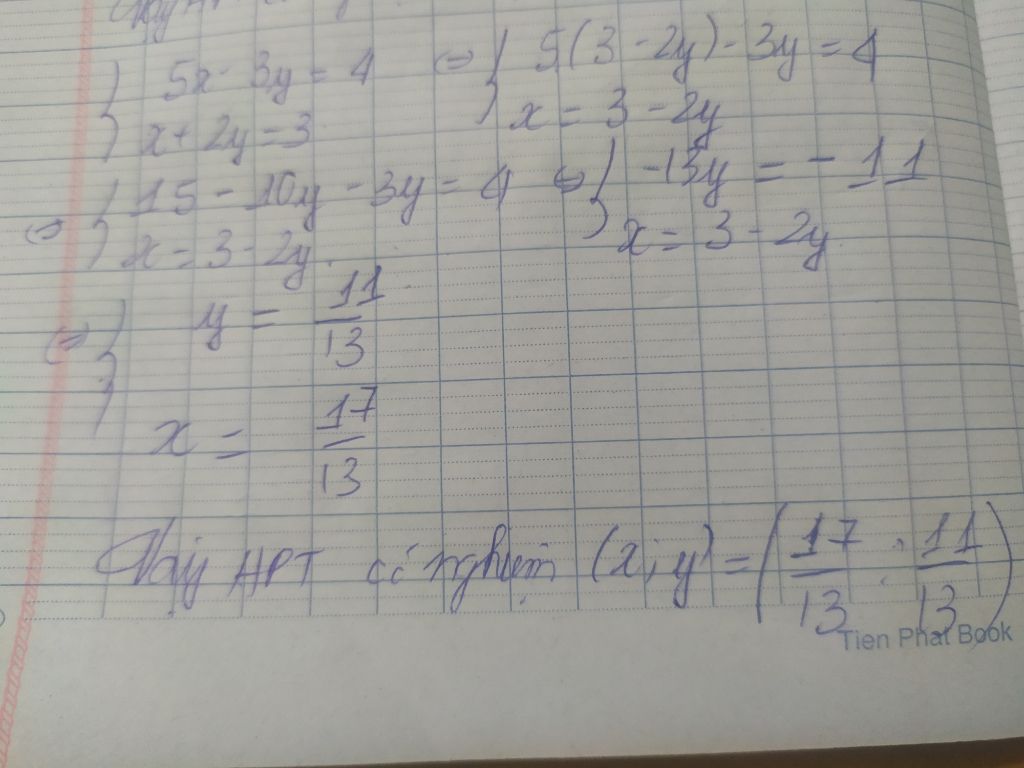 { 5x - 3y = 4 ⇔ { 5(3 - 2y) - 3y = 4
x + 2y = 3 x = 3 - 2y
⇔ { 15 - 10y - 3y = 4 ⇔ { -13y = - 11
x = 3 - 2y x = 3 - 2y
⇔ { y = 11/13
x = 17/13
Vậy HPT có nghiệm (x; y) = (17/13 ; 11/13)
Tien Phat Book